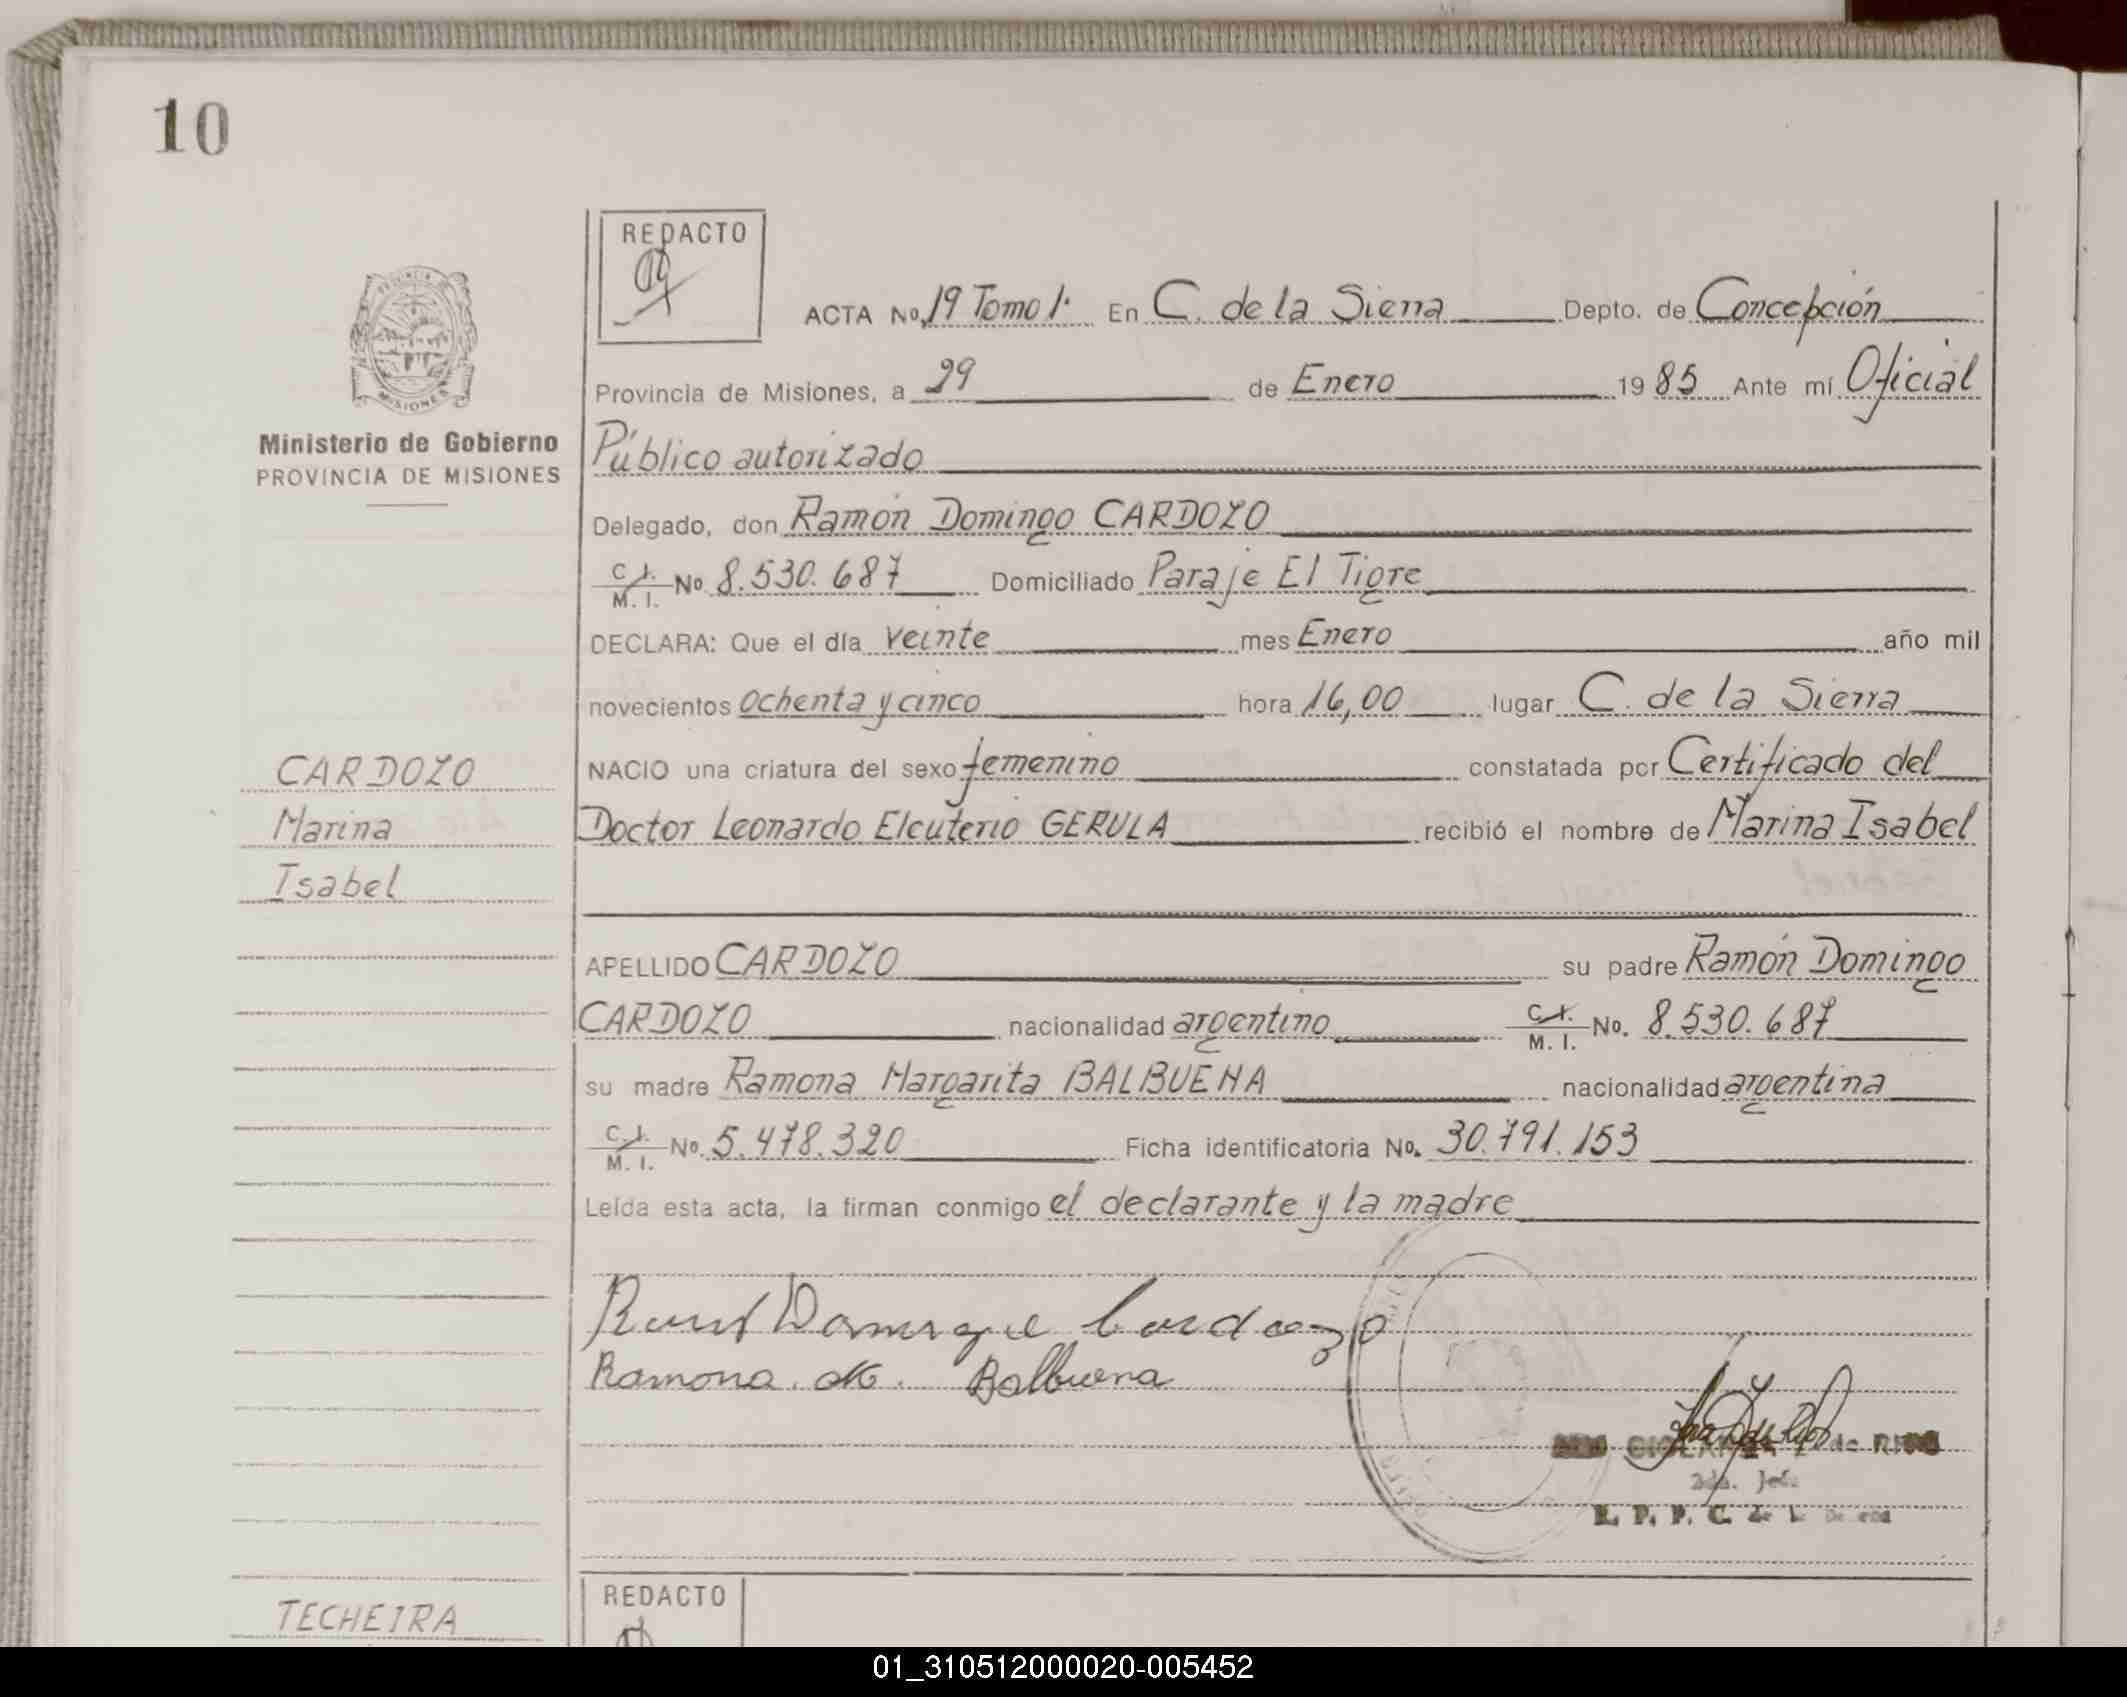 10
REDACTO
ACTA No. 19 Tomo 1· En C. de la Sierra Depto. de Concepción
Provincia de Misiones, a 29 de Enero 1985 Ante mí Oficial
Ministerio de Gobierno
PROVINCIA DE MISIONES
Público autorizado
Delegado, don Ramón Domingo CARDOZO
C.I. M. I. No. 8.530.687 Domiciliado Paraje El Tigre
DECLARA: Que el día veinte mes Enero año mil
novecientos ochenta y cinco hora 16,00 lugar C. de la Sierra
CARDOZO
NACIO una criatura del sexo femenino constatada por Certificado del
Marina
Doctor Leonardo Eleuterio GERULA recibió el nombre de Marina Isabel
Isabel
APELLIDO CARDOZO su padre Ramón Domingo
CARDOZO nacionalidad argentino C.I. M. I. No. 8.530.687
su madre Ramona Margarita BALBUENA nacionalidad argentina
C.I. M. I. No. 5.478.320 Ficha identificatoria No. 30.791.153
Leída esta acta, la firman conmigo el declarante y la madre
Domingue Cardozo
Ramona. M. Balbuena
de RIOS
2da. Jefe
R. P. P. C. de la
REDACTO
TECHEIRA
01_310512000020-005452